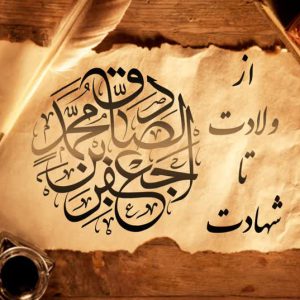 از
ولادت
تا
شهادت
جعفر بن محمد الصادق